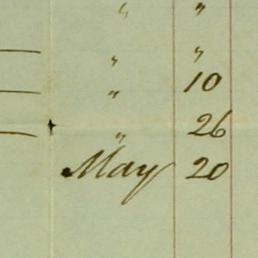 " "
" "
" 10
" 26
May 20